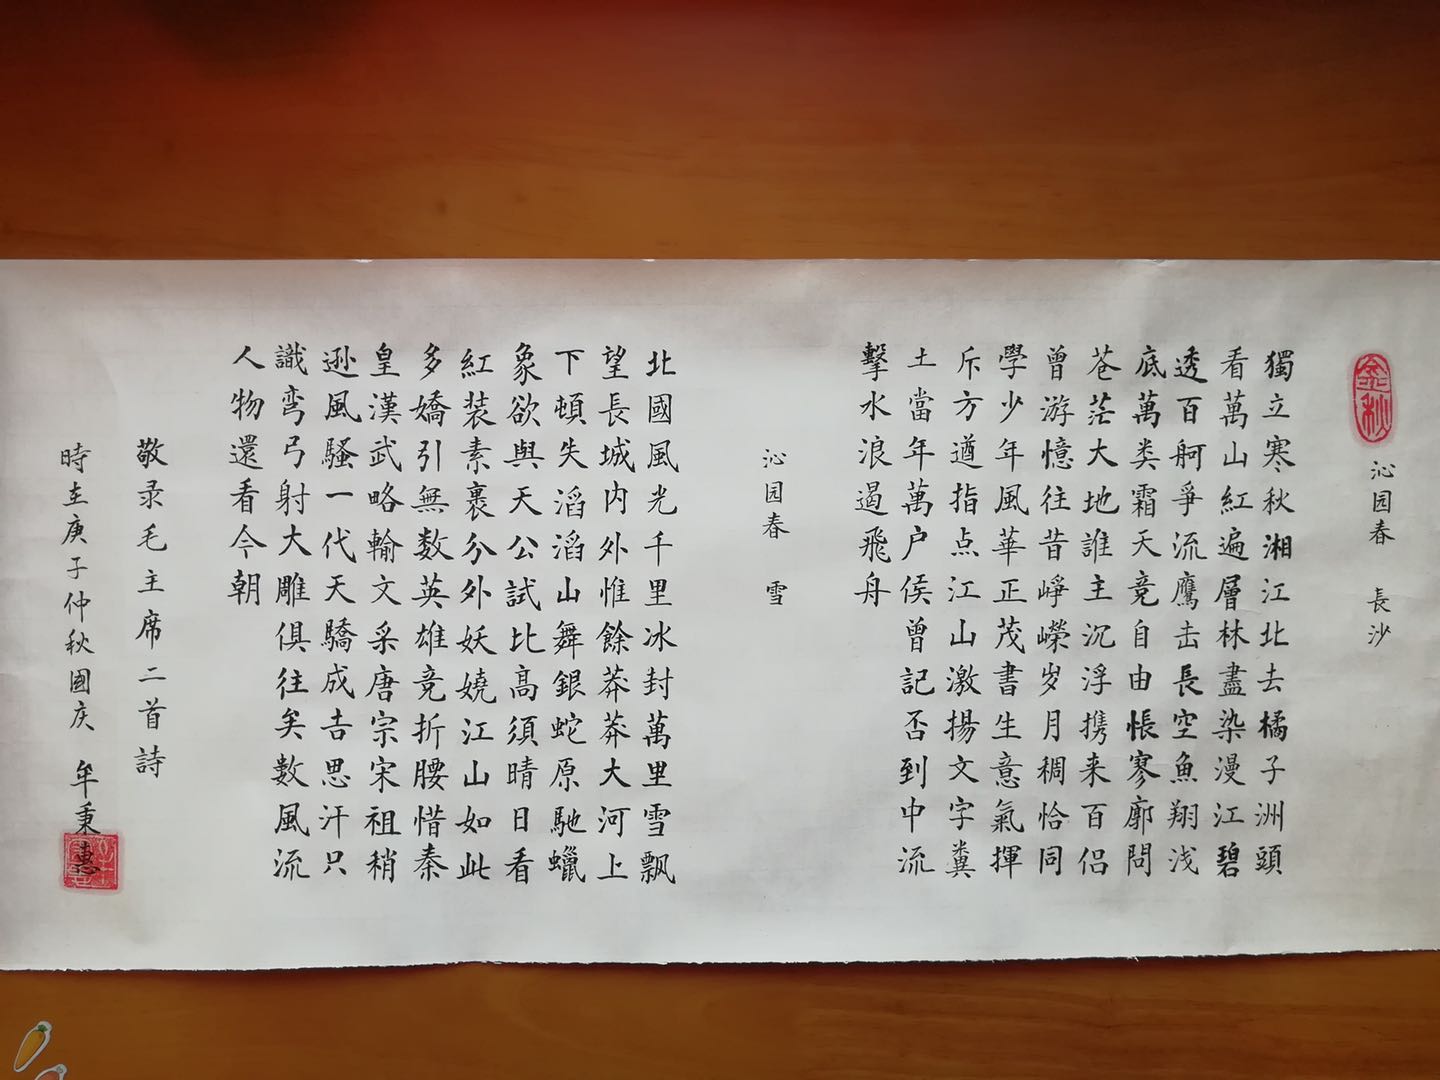 金秋
沁园春 長沙
獨立寒秋湘江北去橘子洲頭
看萬山紅遍層林盡染漫江碧
透百舸爭流鷹击長空魚翔浅
底萬类霜天竞自由悵寥廓問
苍茫大地誰主沉浮携来百侣
曾游憶往昔峥嵘岁月稠恰同
學少年風華正茂書生意氣揮
斥方遒指点江山激揚文字糞
土當年萬户侯曾記否到中流
擊水浪遏飛舟
沁园春 雪
北國風光千里冰封萬里雪飘
望長城内外惟餘莽莽大河上
下頓失滔滔山舞銀蛇原馳蠟
象欲與天公試比高須晴日看
紅装素裹分外妖嬈江山如此
多嬌引無数英雄竞折腰惜秦
皇漢武略輸文采唐宗宋祖稍
逊風騷一代天驕成吉思汗只
識弯弓射大雕俱往矣数風流
人物還看今朝
敬录毛主席二首詩
時在庚子仲秋國庆 牟秉惠